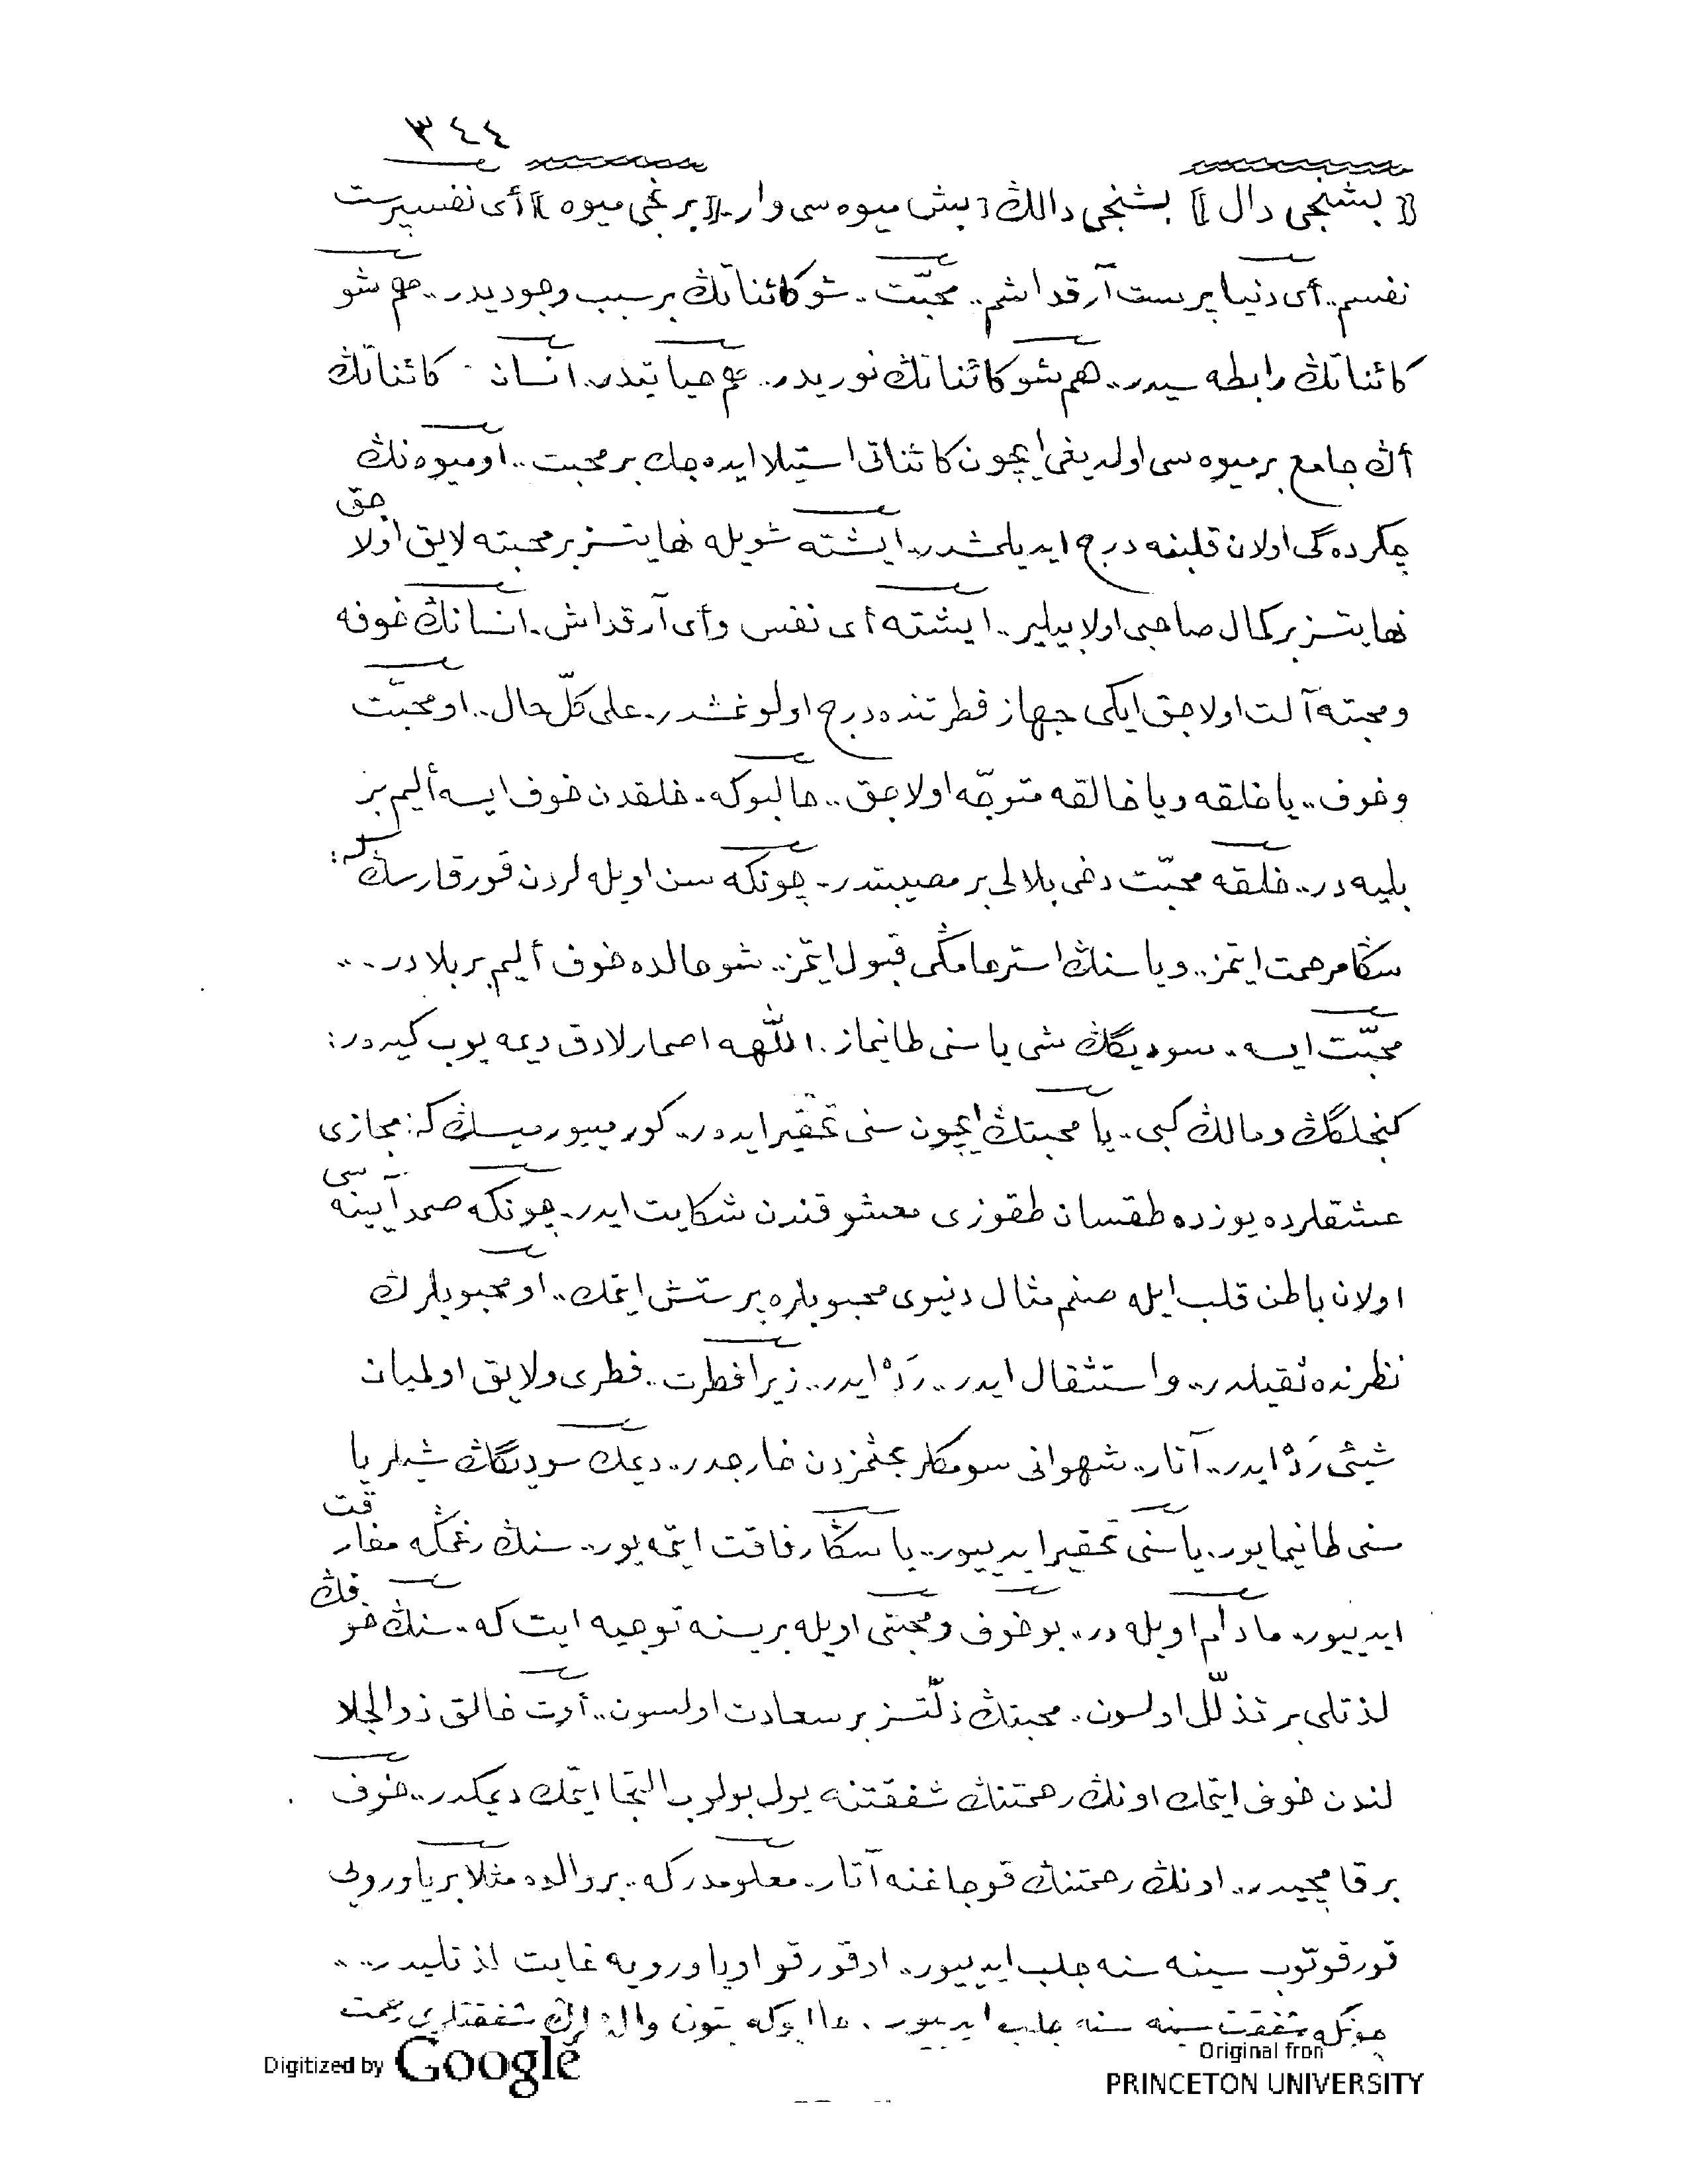 ٣٤٤
⟦ بشنجی دال ⟧ بشنجی دالڭ بش میوه سی وار.. ⟦ برنجی میوه ⟧ أی نفسپرست
نفسم.. أی دنیا پرست آرقداشم.. محبّت.. شو كائناتڭ بر سبب وجودیدر.. هم شو
كائناتڭ رابطه سیدر.. هم شو كائناتڭ نوریدر.. هم حیاتیدر.. انسان كائناتڭ
أڭ جامع بر میوه سی اولدیغی ایچون كائناتی استیلا ایده جك بر محبت.. او میوه نڭ
چكرده گی اولان قلبنه درج ایدیلمشدر.. ایشته شویله نهایتسز بر محبته لایق اولاجق
نهایتسز بر كمال صاحبی اولابیلیر.. ایشته أی نفس وأی آرقداش.. انسانڭ خوفه
و محبته آلت اولاجق ایكی جهاز فطرتنده درج اولونمشدر.. علی كلّ حال.. او محبّت
و خوف.. یا خلقه ویا خالقه متوجّه اولاجق.. حالبوكه.. خلقدن خوف ایسه ألیم بر
بلیه در.. خلقه محبّت دخی بلالی بر مصیبتدر.. چونكه سن اویله لردن قورقارسڭ كه:
سڭا مرحمت ایتمز.. ویا سنڭ استرحامڭی قبول ایتمز.. شو حالده خوف ألیم بر بلادر..
محبّت ایسه.. سودیگڭ شی یا سنی طانیماز. اللّٰهه اصمارلادق دیمه یوب كیدر:
كنجلگڭ ومالڭ كبی.. یا محبتڭ ایچون سنی تحقیر ایدر.. كورمیورمیسڭ كه: مجازی
عشقلرده یوزده طقسان طقوزی معشوقندن شكایت ایدر.. چونكه صمد آیینه سی
اولان باطن قلب ایله صنم مثال دنیوی محبوبلره پرستش ایتمك.. او محبوبلرڭ
نظرنده ثقیلدر.. و استثقال ایدر.. ردّ ایدر.. زیرا فطرت.. فطری ولایق اولمیان
شیئی ردّ ایدر.. آتار.. شهوانی سومكلر بحثمزدن خارجدر.. دیمك سودیگڭ شیلر یا
سنی طانیمایور.. یا سنی تحقیر ایدییور.. یا سڭا رفاقت ایتمه یور.. سنڭ رغمڭه مفارقت
ایدییور.. مادام اویله در.. بو خوف و محبتی اویله برینه توجیه ایت كه.. سنڭ خوفڭ
لذتلی بر تذلّل اولسون.. محبتڭ ذلّتسز بر سعادت اولسون.. أوت خالق ذوالجلا
لندن خوف ایتمك اونڭ رحمتنڭ شفقتنه یول بولوب التجا ایتمك دیمكدر.. خوف
بر قامچیدر.. اونڭ رحمتنڭ قوجاغنه آتار.. معلومدركه.. بر والده مثلا بر یاورویی
قورقوتوب سینه سنه جلب ایدییور.. او قورقو او یاورویه غایت لذتلیدر..
چونكه شفقت سینه سنه جلب ایدییور.. حالبوكه بتون والده لرڭ شفقتلری رحمت
Digitized by Google
Original from
PRINCETON UNIVERSITY